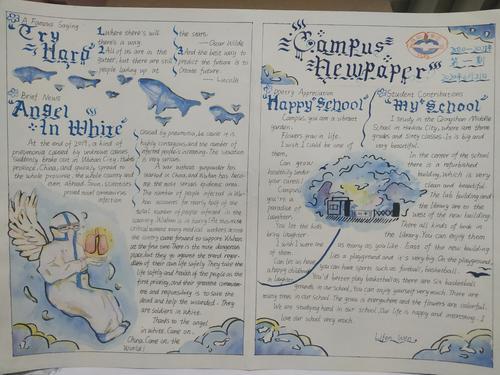 A Famous Saying
Cry Hard
1. Where there's will
there's a way.
2. All of us are in the
gutter, but there are still
people looking up at
the stars.
— Oscar Wilde
3. And the best way to
predict the future is to
create future.
— Lincoln
Brief News
Angel
In White
At the end of 2019, a kind of
pneumonia caused by unknown causes
suddenly broke out in Wuhan City, Hubei
province, China, and quickly spread to
the whole province, the whole country and
even abroad. Soon, scientists
proved novel coronavirus
infection
caused by pneumonia, because it is
highly contagious, and the number of
infected people is increasing. The situation
is very urgent.
A war without gunpowder has
started in China, and Wuhan has become
the most serious epidemic area.
The number of people infected in
Wuhan accounts for nearly half of the
total number of people infected in the
country.
critical moment many medical workers across
the country came forward to support Wuhan
at the first time. There is the most dangerous
place, but they go against the trend regardless
of their own life safety. They take the
life safety and health of the people as the
first priority, and their greatest commitment
and responsibility is to save the
dead and help the wounded. They
are soldiers in white.
Thanks to the angel
in white. Come on,
China. Come on, the
World!
Campus
Newpaper
2020-2021
第二期
Poetry Appreciation
Happy School
Campus, you are a vibrant
garden.
Flowers grow in life.
I wish I could be one of
them,
Can grow
healthily under
your care!
Campus,
you're a
paradise of
laughter,
You let the kids
bring laughter
I wish I were one
of them,
Can let us have
a happy childhood
in laughter
Student Contributions
"My School"
I study in the Qingshan Middle
School in Wuhan City, where are three
grades and sixty classes. Is is big and
very beautiful.
In the center of the school
there is a refurbished
building, which is very
clean and beautiful.
The lab building and
the library are in the
west of the new building.
There all kinds of book in
the library. You can enjoy them
as many as you like. East of the new building
lies a playground and it's very big. On the playground,
you can have sports such as football, basketball.
You'd better play basketball as there are six basketball
grounds in our school. You can enjoy yourself very much. There are
many trees in our school. The grass is evergreen and the flowers are colorful.
We are studying hard in our school. Our life is happy and interesting. I
love our school very much.